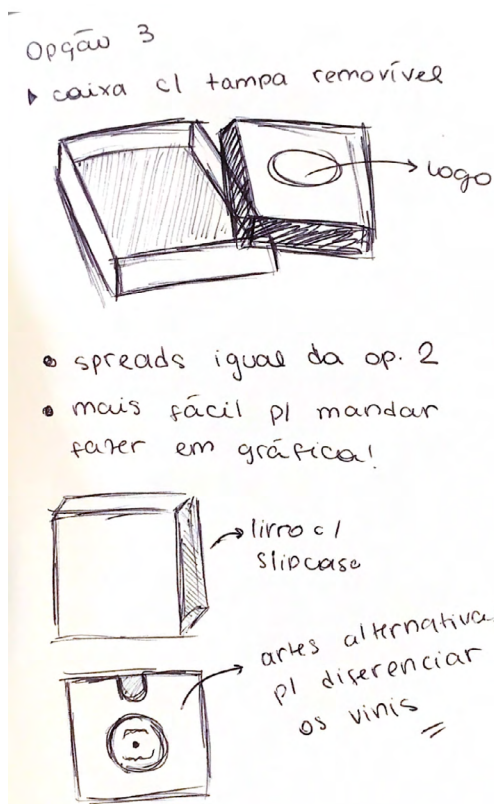 Opção 3
caixa c/ tampa removível
logo
spreads igual da op. 2
mais fácil p/ mandar
fazer em gráfica!
livro c/
slipcase
artes alternativa
p/ diferenciar
os vinis